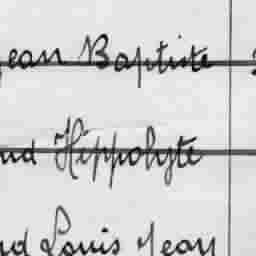 Jean Baptiste
nd Hippolyte
nd Louis Jean